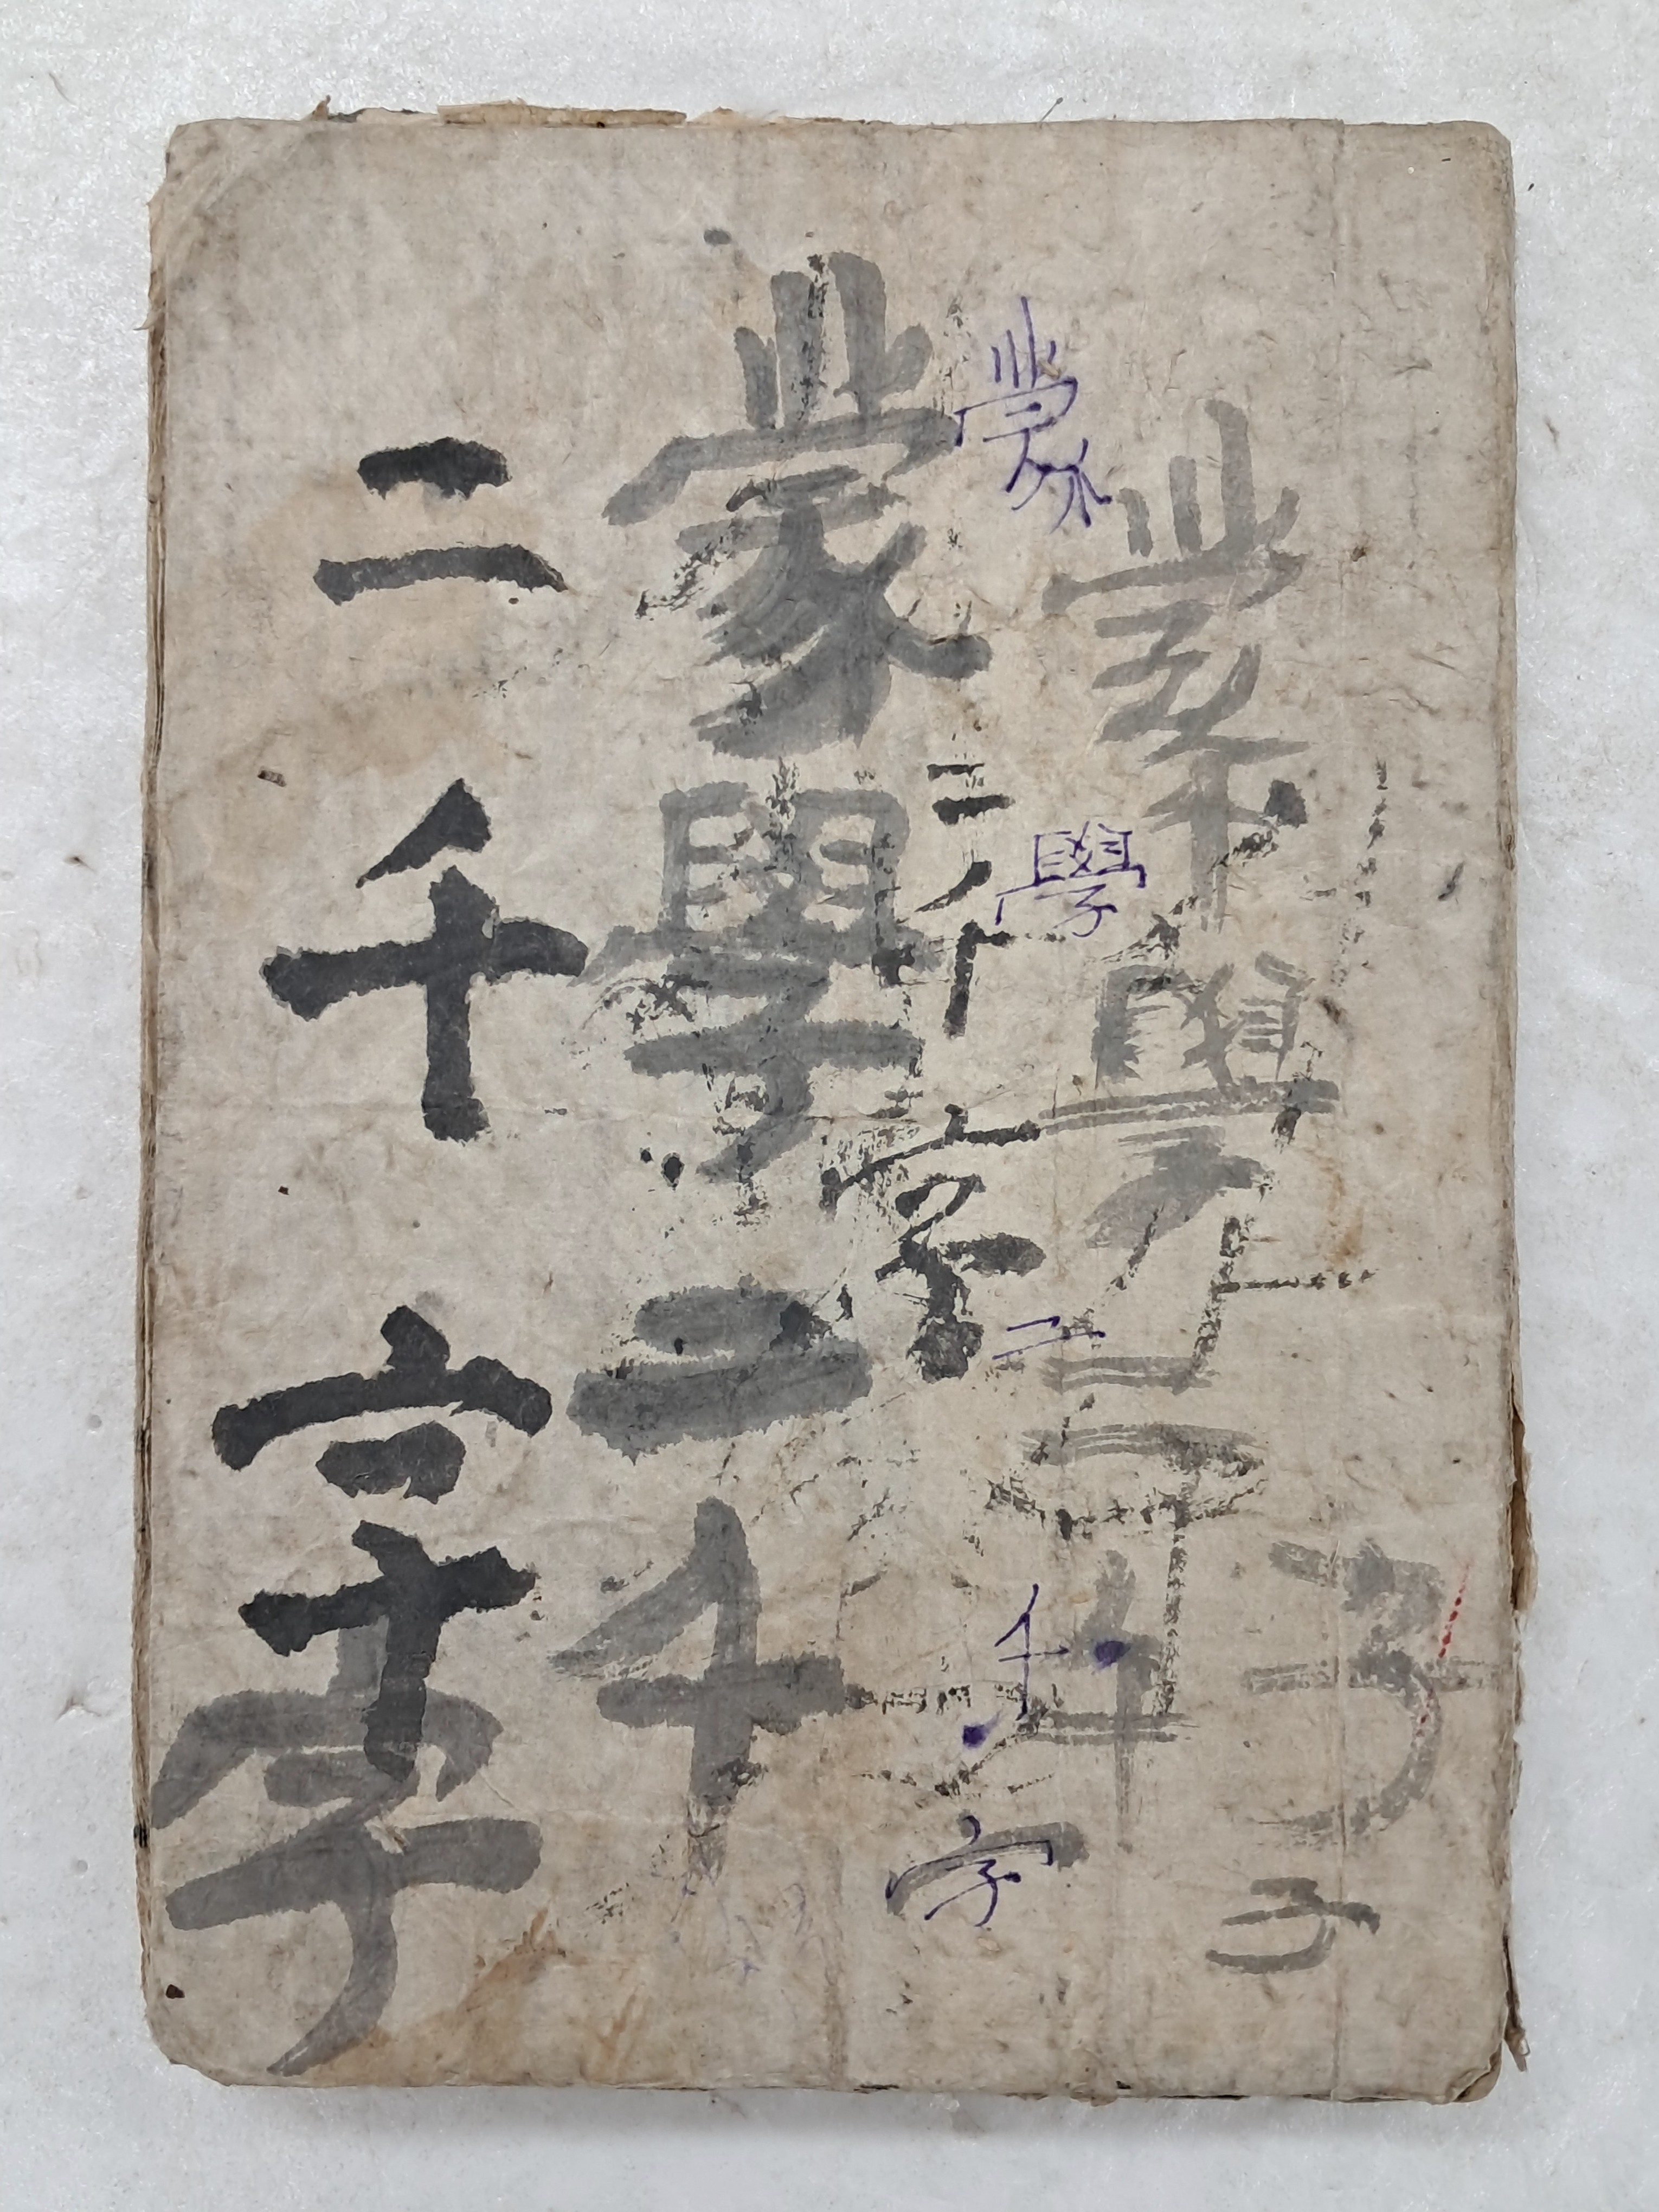 蒙學二千字
蒙學二千字
二千字
蒙學二千
字
二千字